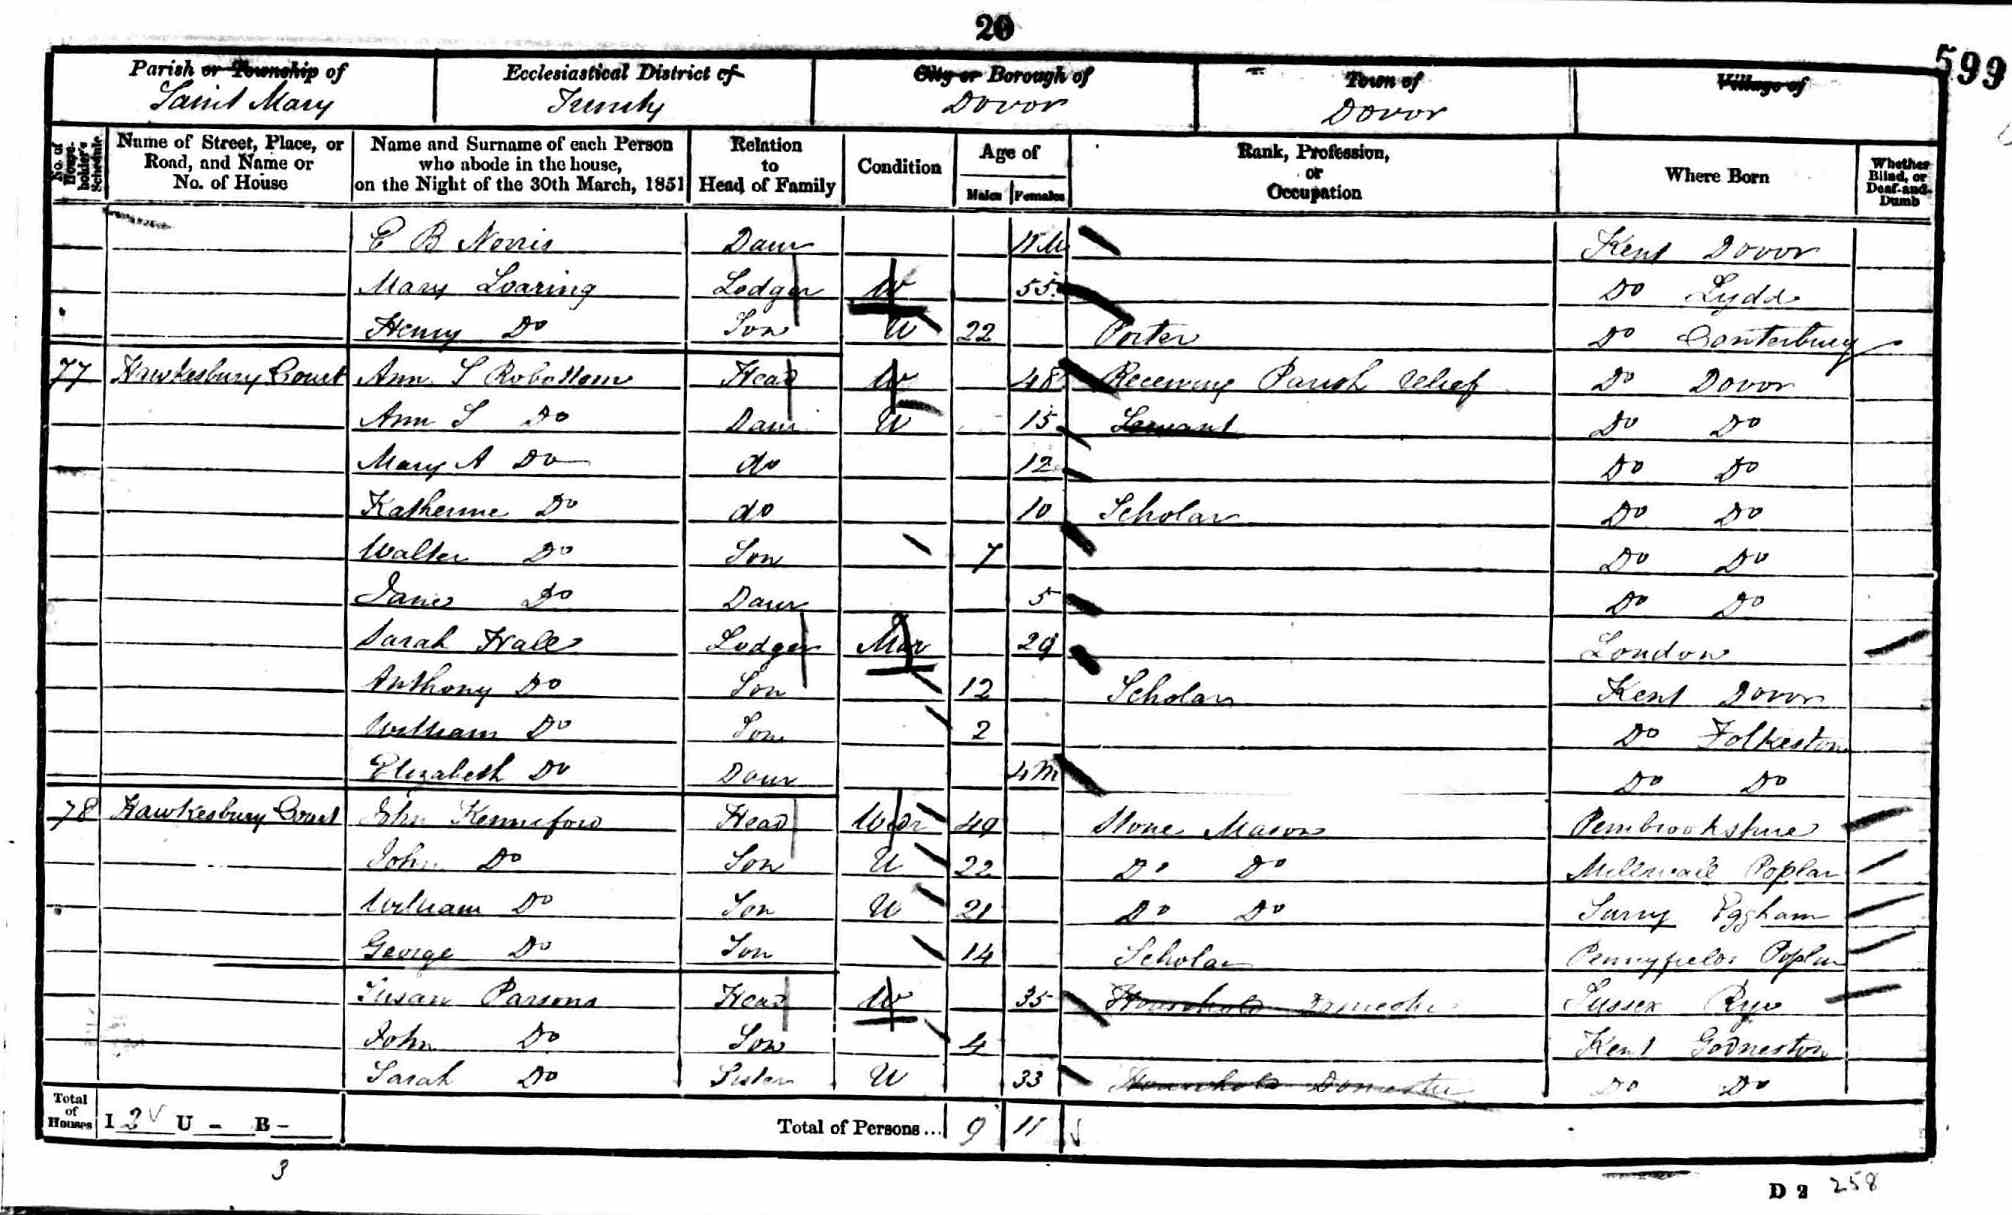 20
599
Parish or Township of
Saint Mary
Ecclesiastical District of
Trinity
City or Borough of
Dovor
Town of
Dovor
Village of
No. of House-holder's Schedule
Name of Street, Place, or Road, and Name or No. of House
Name and Surname of each Person who abode in the house, on the Night of the 30th March, 1851
Relation to Head of Family
Condition
Age of
Males Females
Rank, Profession, or Occupation
Where Born
Whether Blind, or Deaf-and-Dumb
E B Norris Daur Kent Dovor
Mary Loaring Lodger W 55 Do Lydd
Henry Do Son U 22 Porter Do Canterbury
77 Hawkesbury Court Ann S Robottom Head W 48 Receiving Parish relief Do Dovor
Ann S Do Daur U 15 Servant Do Do
Mary A Do do 12 Do Do
Katherine Do do 10 Scholar Do Do
Walter Do Son 7 Do Do
Jane Do Daur 5 Do Do
Sarah Hall Lodger Mar 29 London
Anthony Do Son 12 Scholar Kent Dovor
William Do Son 2 Do Folkeston
Elizabeth Do Daur 4 M Do Do
78 Hawkesbury Court John Kenneford Head Widr 49 Stone Mason Pembrookshire
John Do Son U 22 Do Do Millwall Poplar
William Do Son U 21 Do Do Surry Eggham
George Do Son 14 Scholar Pennyfields Poplar
Susan Parsons Head W 35 Household Domestic Sussex Rye
John Do Son 4 Kent Godneston
Sarah Do Sister U 33 Household Domestic Do Do
Total of Houses I 2 U - B -
Total of Persons... 9 11
3
D 2 258